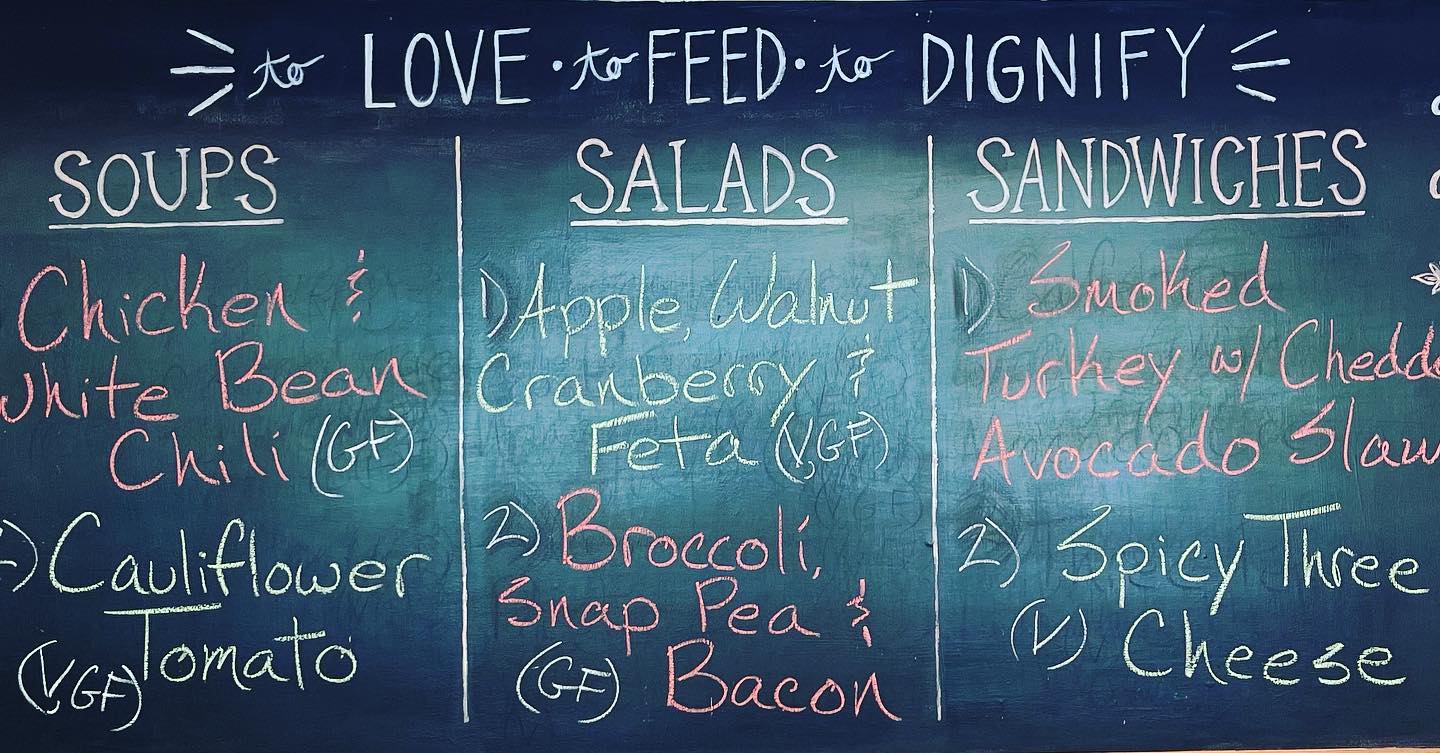 to LOVE · to FEED · to DIGNIFY
SOUPS
Chicken &
White Bean
Chili (GF)
2) Cauliflower
Tomato
(V,GF)
SALADS
1) Apple, Walnut
Cranberry &
Feta (V,GF)
2) Broccoli,
Snap Pea &
(GF) Bacon
SANDWICHES
1) Smoked
Turkey w/ Chedde
Avocado Slaw
2) Spicy Three
(V) Cheese